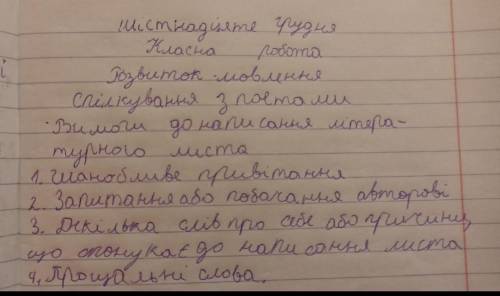 шістнадцяте грудня
Класна робота
Розвиток мовлення
Спілкування з поетами
Вимоги до написання літера-
турного листа
1. Шанобливе привітання
2. Запитання або побажання авторові
3. Декілька слів про себе або причини,
що спонукає до написання листа
4. Прощальні слова.